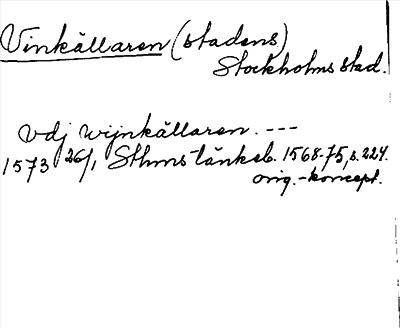 Vinkällaren (stadens)
Stockholms stad.
vdj wijnkällaren. ---
1573 26/1 Sthms tänkeb. 1568-75, s. 224.
orig.-koncept.